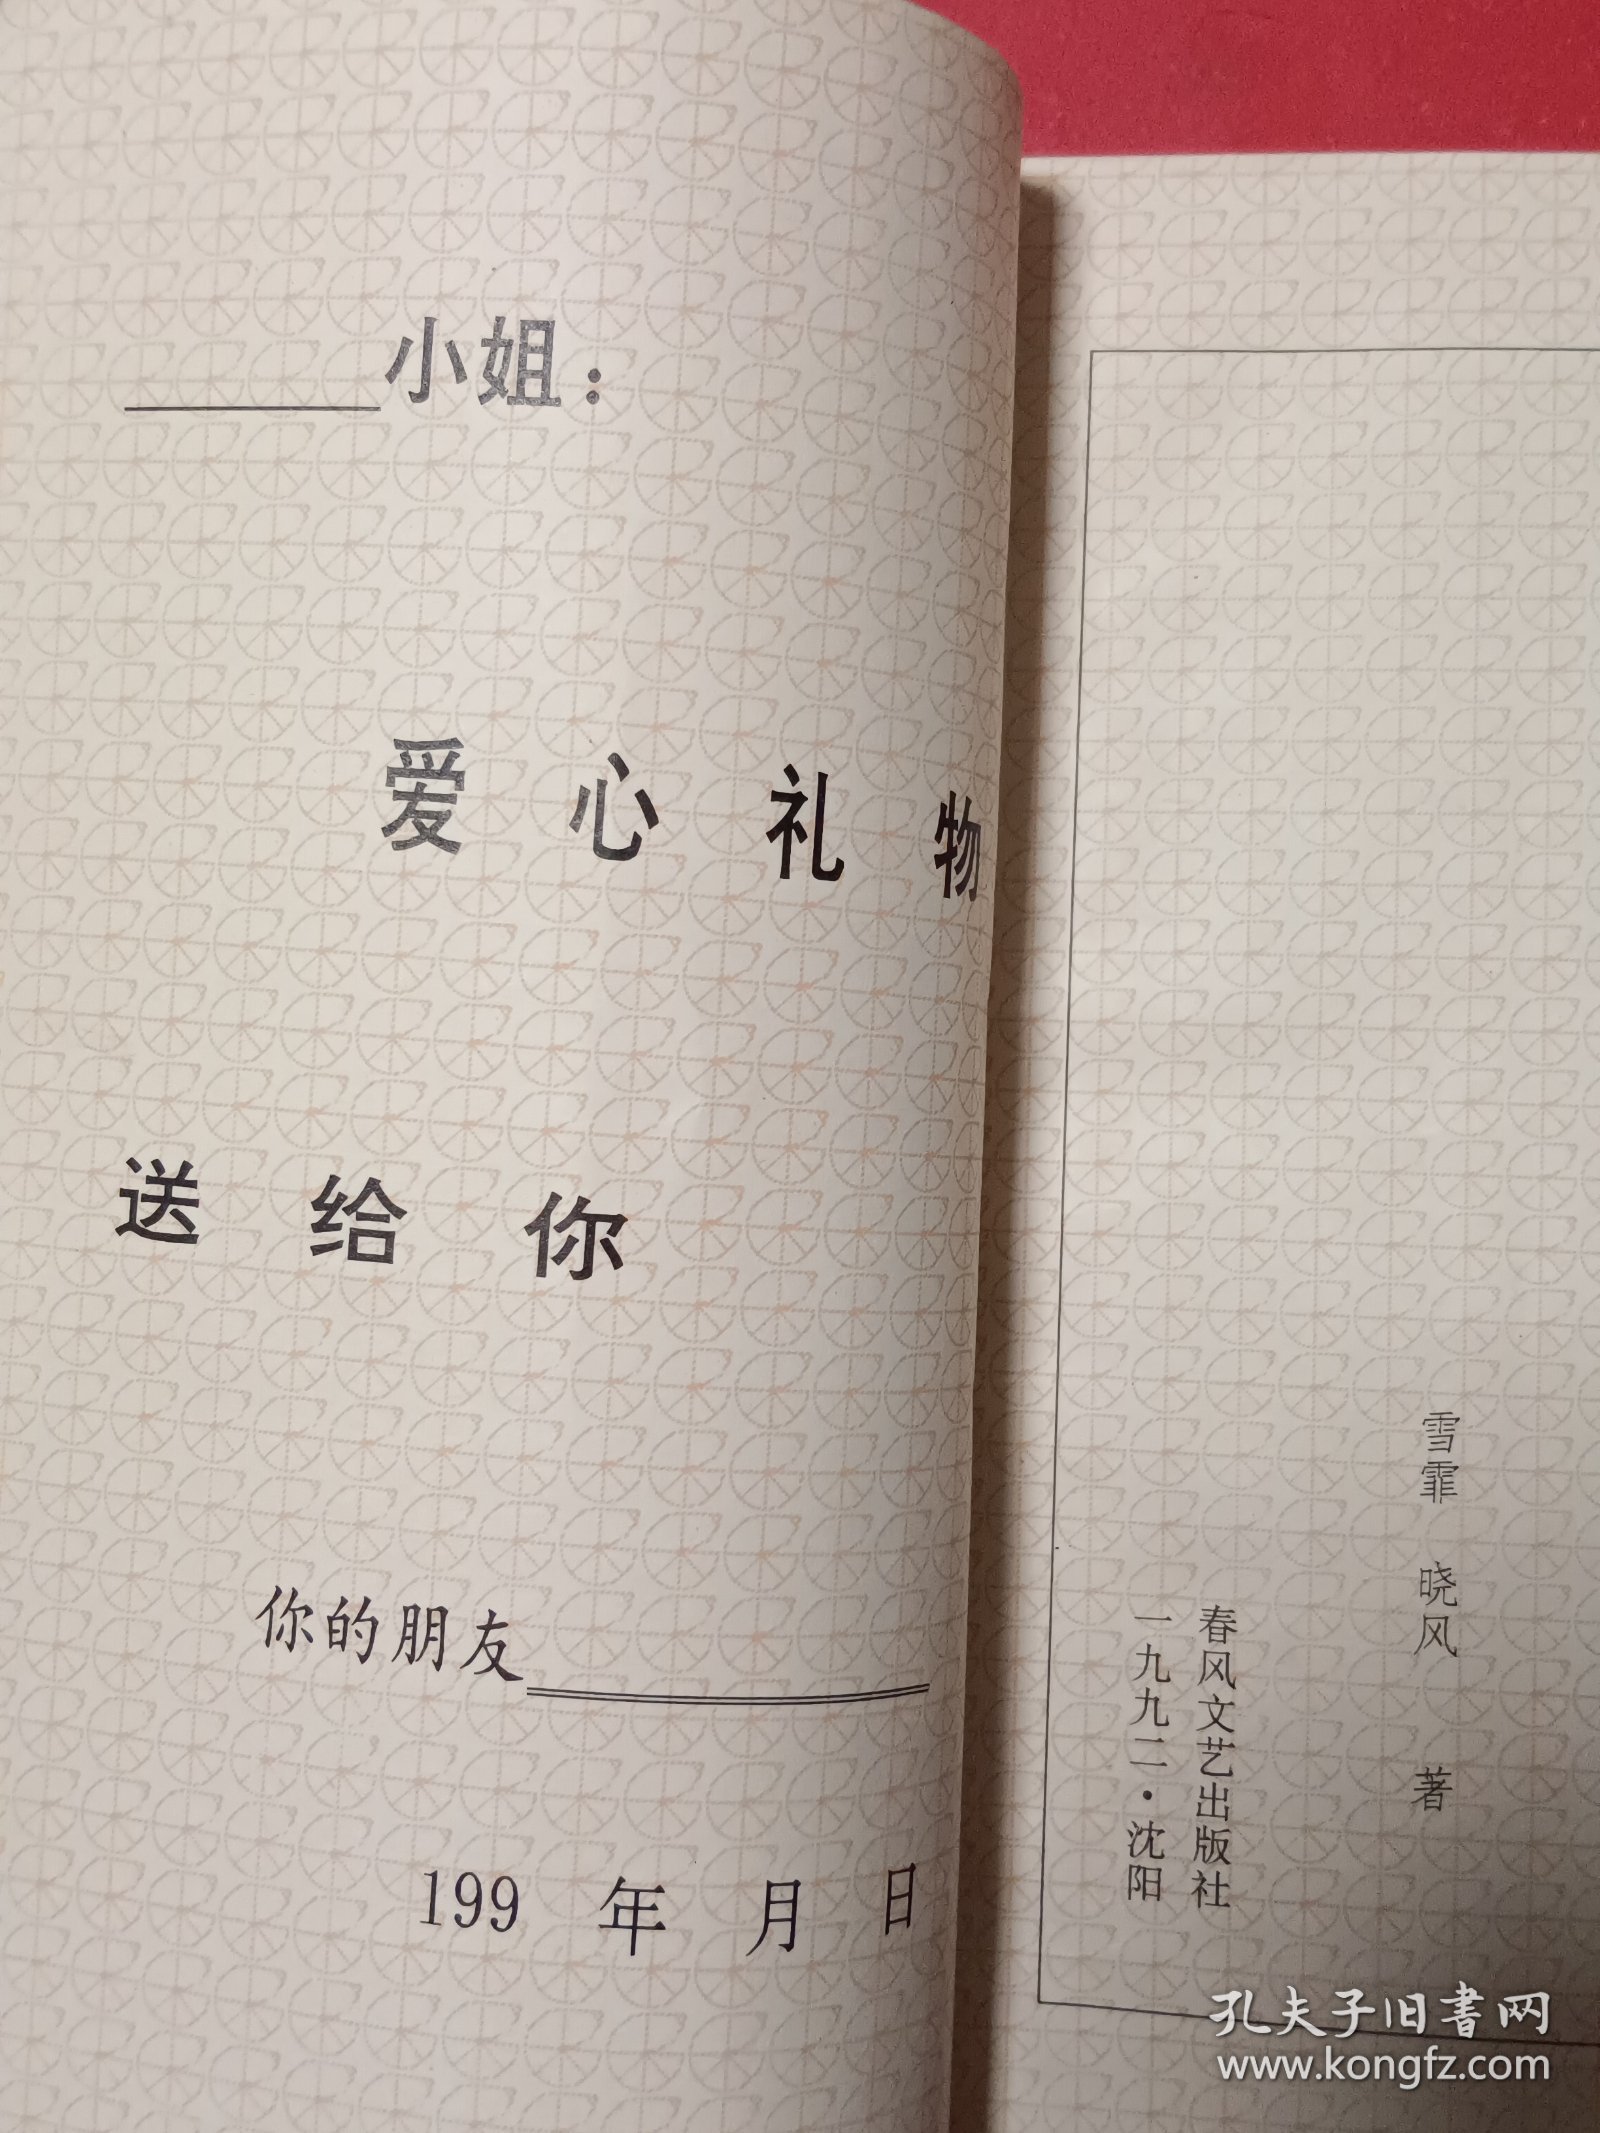 小姐：
爱心礼物
送给你
你的朋友
199 年 月 日
雪霏 晓风 著
春风文艺出版社
一九九二·沈阳
孔夫子旧書网
www.kongfz.com